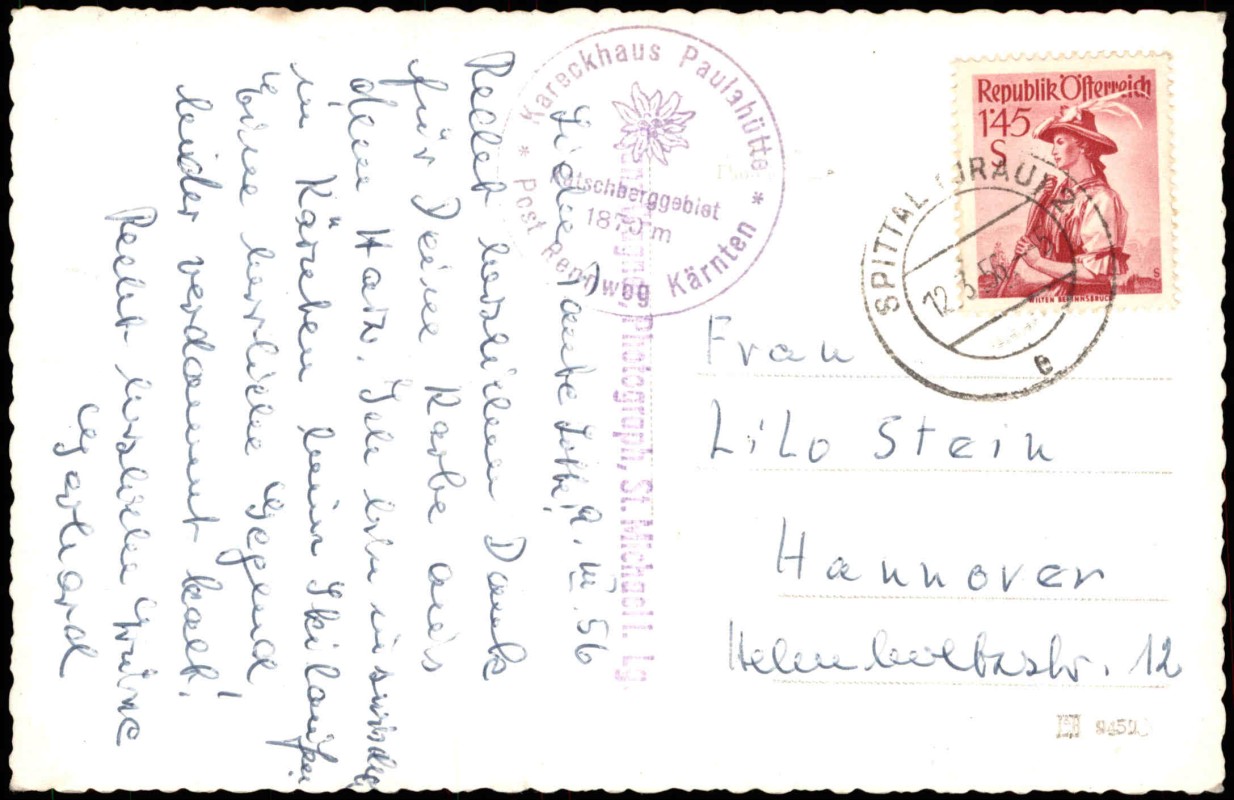 Kareckhaus Paulahütte
Katschberggebiet
1875 m
* Post Rennweg Kärnten *
Photograph, St. Michael i. Lg.
9. III. 56
Liebe Tante Lotte!
Recht herzlichen Dank
für Deine Karte aus
dem Harz. Ich bin inzwischen
in Kärnten beim Skilaufen
Eine herrliche Gegend
leider verdammt kalt!
Recht herzliche Grüße
Gerhard
Republik Österreich
1'45
S
WILTEN BEI INNSBRUCK
SPITTAL (DRAU) 2
12.3.56
e
Frau
Lilo Stein
Hannover
Helmholtzstr. 12